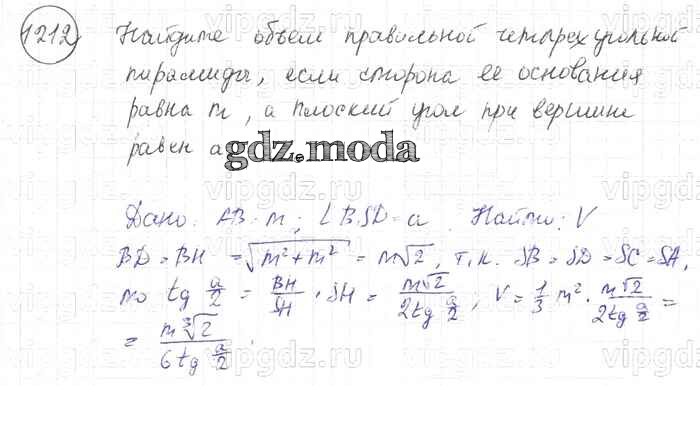 1212 Найдите объем правильной четырехугольной
пирамиды, если сторона ее основания
равна m, а плоский угол при вершине
равен a
gdz.moda
Дано: AB = m; ∠BSD = a. Найти: V
BD = BH = √(m² + m²) = m√2, т.к. SB = SD = SC = SA,
то tg a/2 = BH/SH, SH = m√2/(2tg a/2); V = 1/3 m² · m√2/(2tg a/2) =
= m∛2/(6tg a/2).